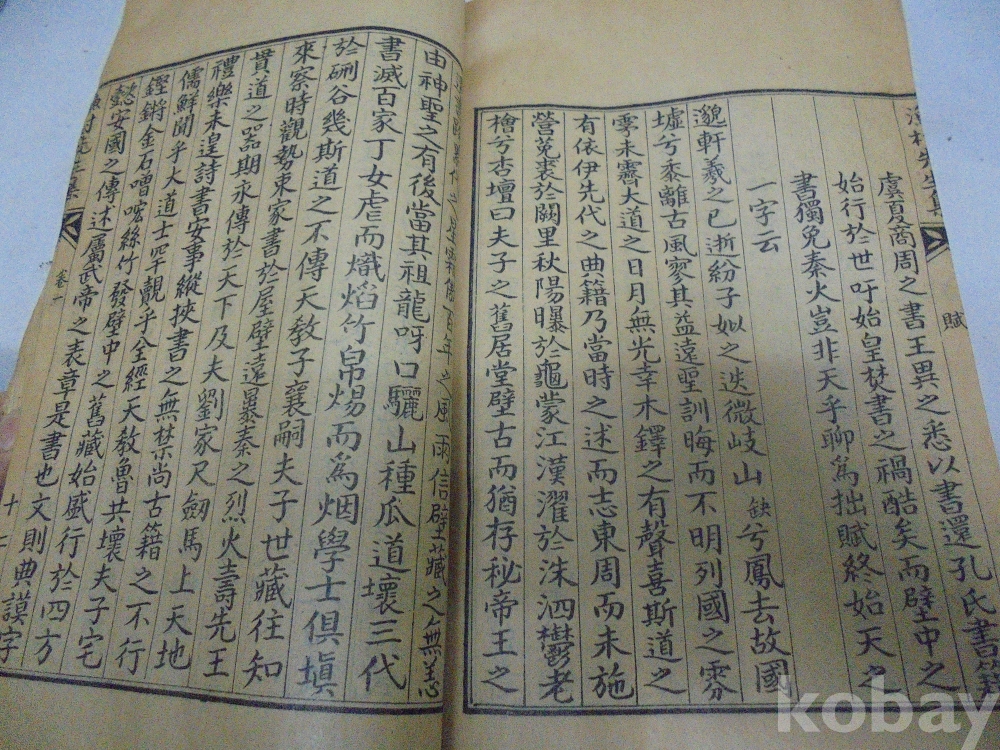 虞夏商周之書王異之悉以書還孔氏書籍
始行於世吁始皇焚書之禍酷矣而壁中之
書獨免秦火豈非天乎聊爲拙賦終始天之
一字云
邈軒羲之已逝紛子姒之迭微岐山缺兮鳳去故國
墟兮黍離古風寥其益遠聖訓晦而不明列國之雰
雰未霽大道之日月無光幸木鐸之有聲喜斯道之
有依伊先代之典籍乃當時之述而志東周而未施
營菟裘於闕里秋陽曝於龜蒙江漢濯於洙泗欝老
檜兮杏壇曰夫子之舊居堂壁古而猶存秘帝王之
賦
百年之風雨信壁藏之無恙
由神聖之有後當其祖龍呀口驪山種瓜道壞三代
書滅百家丁女虐而熾焰竹帛煬而爲烟學士俱塡
於硎谷幾斯道之不傳天教子襄嗣夫子世藏往知
來察時觀勢束家書於屋壁遠暴秦之烈火壽先王
貴道之器期永傳於天下及夫劉家尺劒馬上天地
禮樂未遑詩書安事縱挾書之無禁尚古籍之不行
儒鮮聞乎大道士罕覿乎全經天教魯共壞夫子宅
鏗鏘金石嘈嘧絲竹發壁中之舊藏始盛行於四方
懿安國之傳述屬武帝之表章是書也文則典謨字
卷一
十二